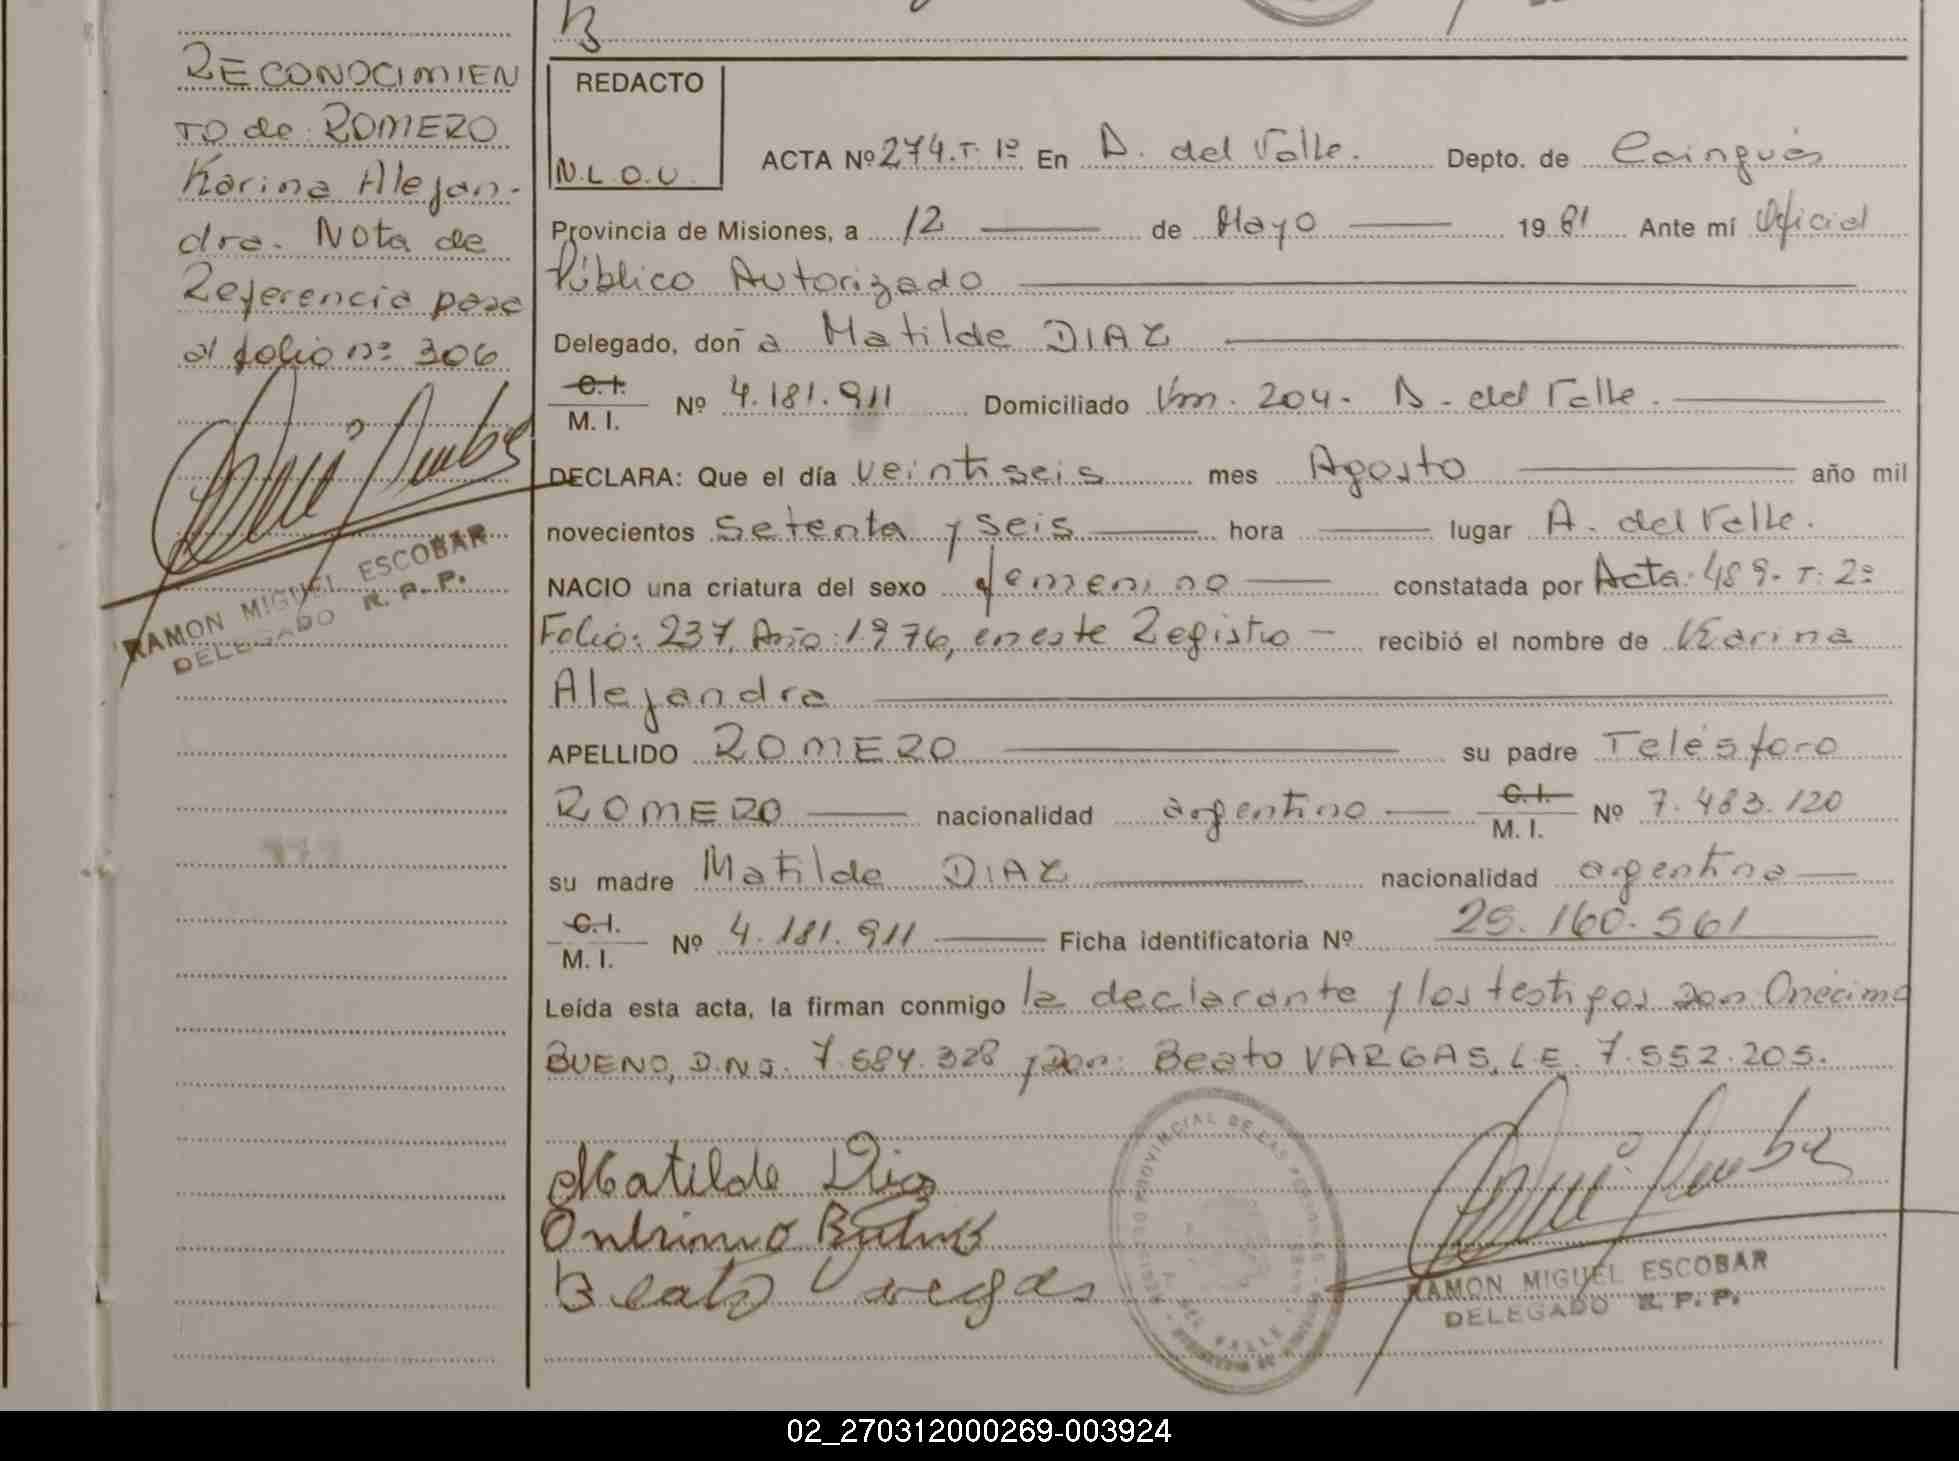 RECONOCIMIEN
TO de: ROMERO
Karina Alejan-
dra. Nota de
Referencia pase
al folio nº 306
RAMON MIGUEL ESCOBAR
DELEGADO R. P. P.
REDACTO
N.L.O.U.
ACTA Nº 274.T.1º En A. del Valle. Depto. de Cainguás
Provincia de Misiones, a 12 de Mayo 1981 Ante mí Oficial
Público Autorizado
Delegado, doña Matilde DIAZ
C.I.
M. I. Nº 4.181.911 Domiciliado Km. 204- A. del Valle.
DECLARA: Que el día veintiseis mes Agosto año mil
novecientos setenta y seis hora lugar A. del Valle.
NACIO una criatura del sexo femenino constatada por Acta: 489- T: 2º
Folio: 237, Año: 1976, en este Registro - recibió el nombre de Karina
Alejandra
APELLIDO ROMERO su padre Telésforo
ROMERO nacionalidad argentino C.I. M. I. Nº 7.483.120
su madre Matilde DIAZ nacionalidad argentina
C.I.
M. I. Nº 4.181.911 Ficha identificatoria Nº 25.160.561
Leída esta acta, la firman conmigo la declarante y los testigos don Onecimo
BUENO, D.N.I. 7.684.328 y don: Beato VARGAS, L.E. 7.552.205.
Matilde Diaz
Onesimo Bueno
Beato Vargas
REGISTRO PROVINCIAL DE LAS PERSONAS
DEL VALLE
RAMON MIGUEL ESCOBAR
DELEGADO R. P. P.
02_270312000269-003924